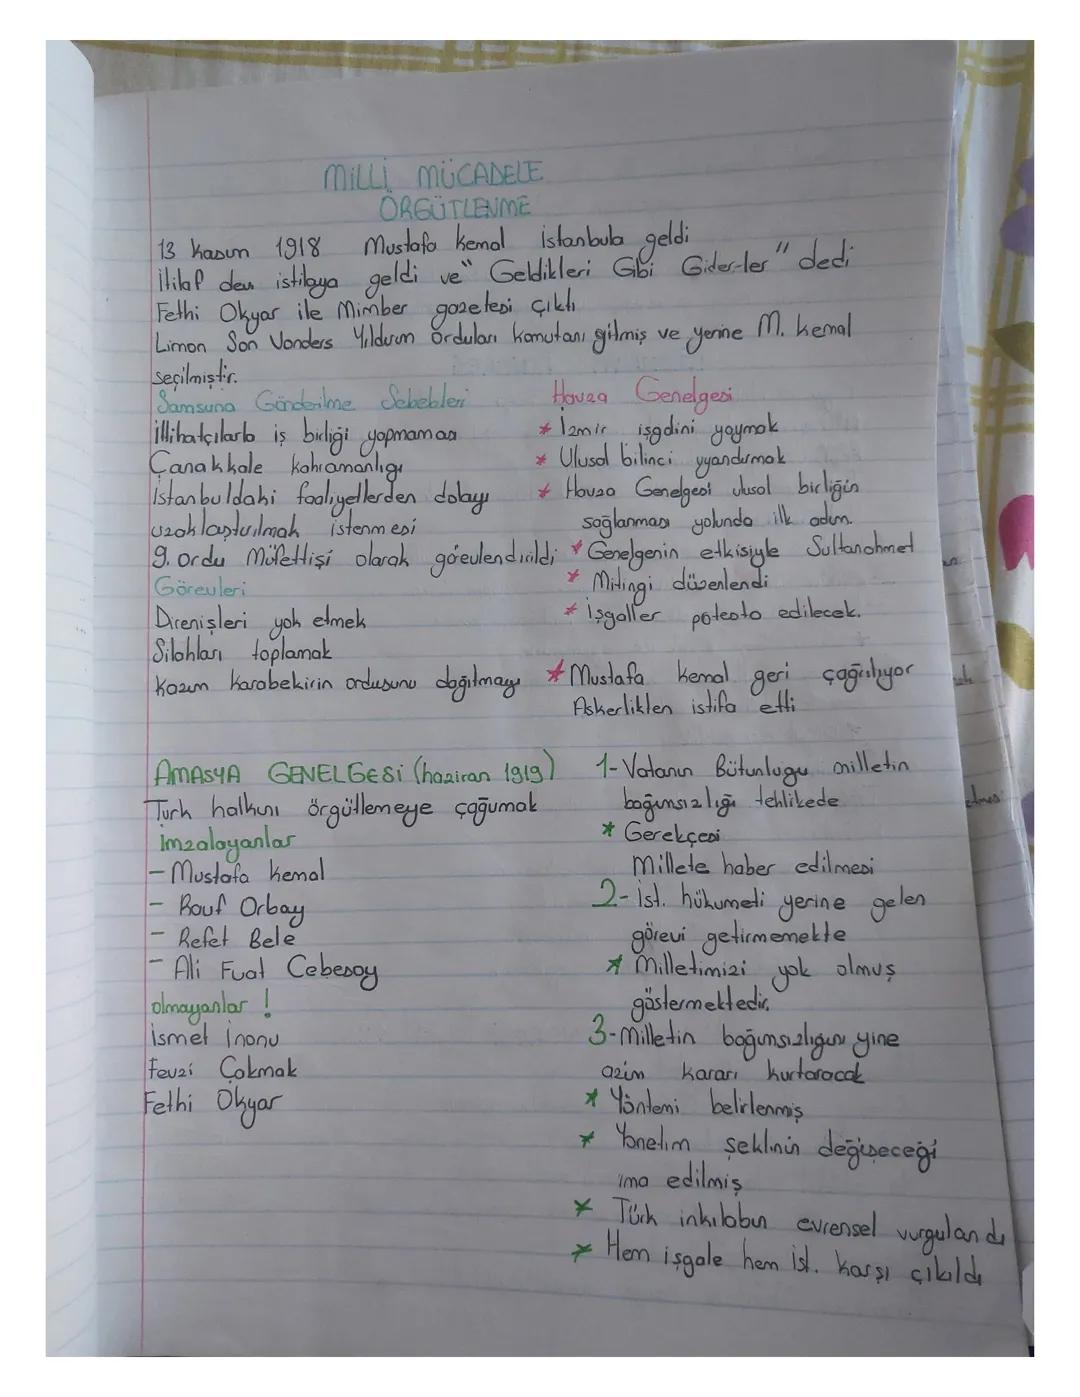 MİLLİ MÜCADELE
ÖRGÜTLENME
13 Kasım 1918 Mustafa Kemal İstanbula geldi
İtilaf den istilaya geldi ve " Geldikleri Gibi Gider-ler " dedi
Fethi Okyar ile Mimber gazetesi çıktı
Limon Son Vonders Yıldırım Orduları Komutanı gitmiş ve yerine M. Kemal
seçilmiştir.
Samsuna Gönderilme Sebebleri
İttihatçılarla iş birliği yapmaması
Çanakkale kahramanlığı
İstanbuldaki faaliyetlerden dolayı
uzaklaştırılmak istenmesi
9. Ordu Müfettişi olarak görevlendirildi
Görevleri
Direnişleri yok etmek
Silahları toplamak
Kazım Karabekirin ordusunu dağıtmayı
Havza Genelgesi
* İzmir işgalini yaymak
* Ulusal bilinci uyandırmak
* Havza Genelgesi ulusal birliğin
sağlanması yolunda ilk adım.
* Genelgenin etkisiyle Sultanahmet
* Mitingi düzenlendi
* İşgaller potesto edilecek.
* Mustafa Kemal geri çağrılıyor
Askerlikten istifa etti
AMASYA GENELGESİ (haziran 1919)
Türk halkını örgütlemeye çağırmak
İmzalayanlar
- Mustafa Kemal
- Rauf Orbay
- Refet Bele
- Ali Fuat Cebesoy
olmayanlar !
İsmet İnönü
Fevzi Çakmak
Fethi Okyar
1- Vatanın Bütünlüğü milletin
bağımsızlığı tehlikede
* Gerekçesi
Millete haber edilmesi
2- İst. hükumeti yerine gelen
görevi getirmemekte
* Milletimizi yok olmuş
göstermektedir.
3- Milletin bağımsızlığını yine
azim kararı kurtaracak
* Yöntemi belirlenmiş
* Yönetim şeklinin değişeceği
ima edilmiş
* Türk inkılabın evrensel vurgulandı
* Hem işgale hem İst. karşı çıkıldı